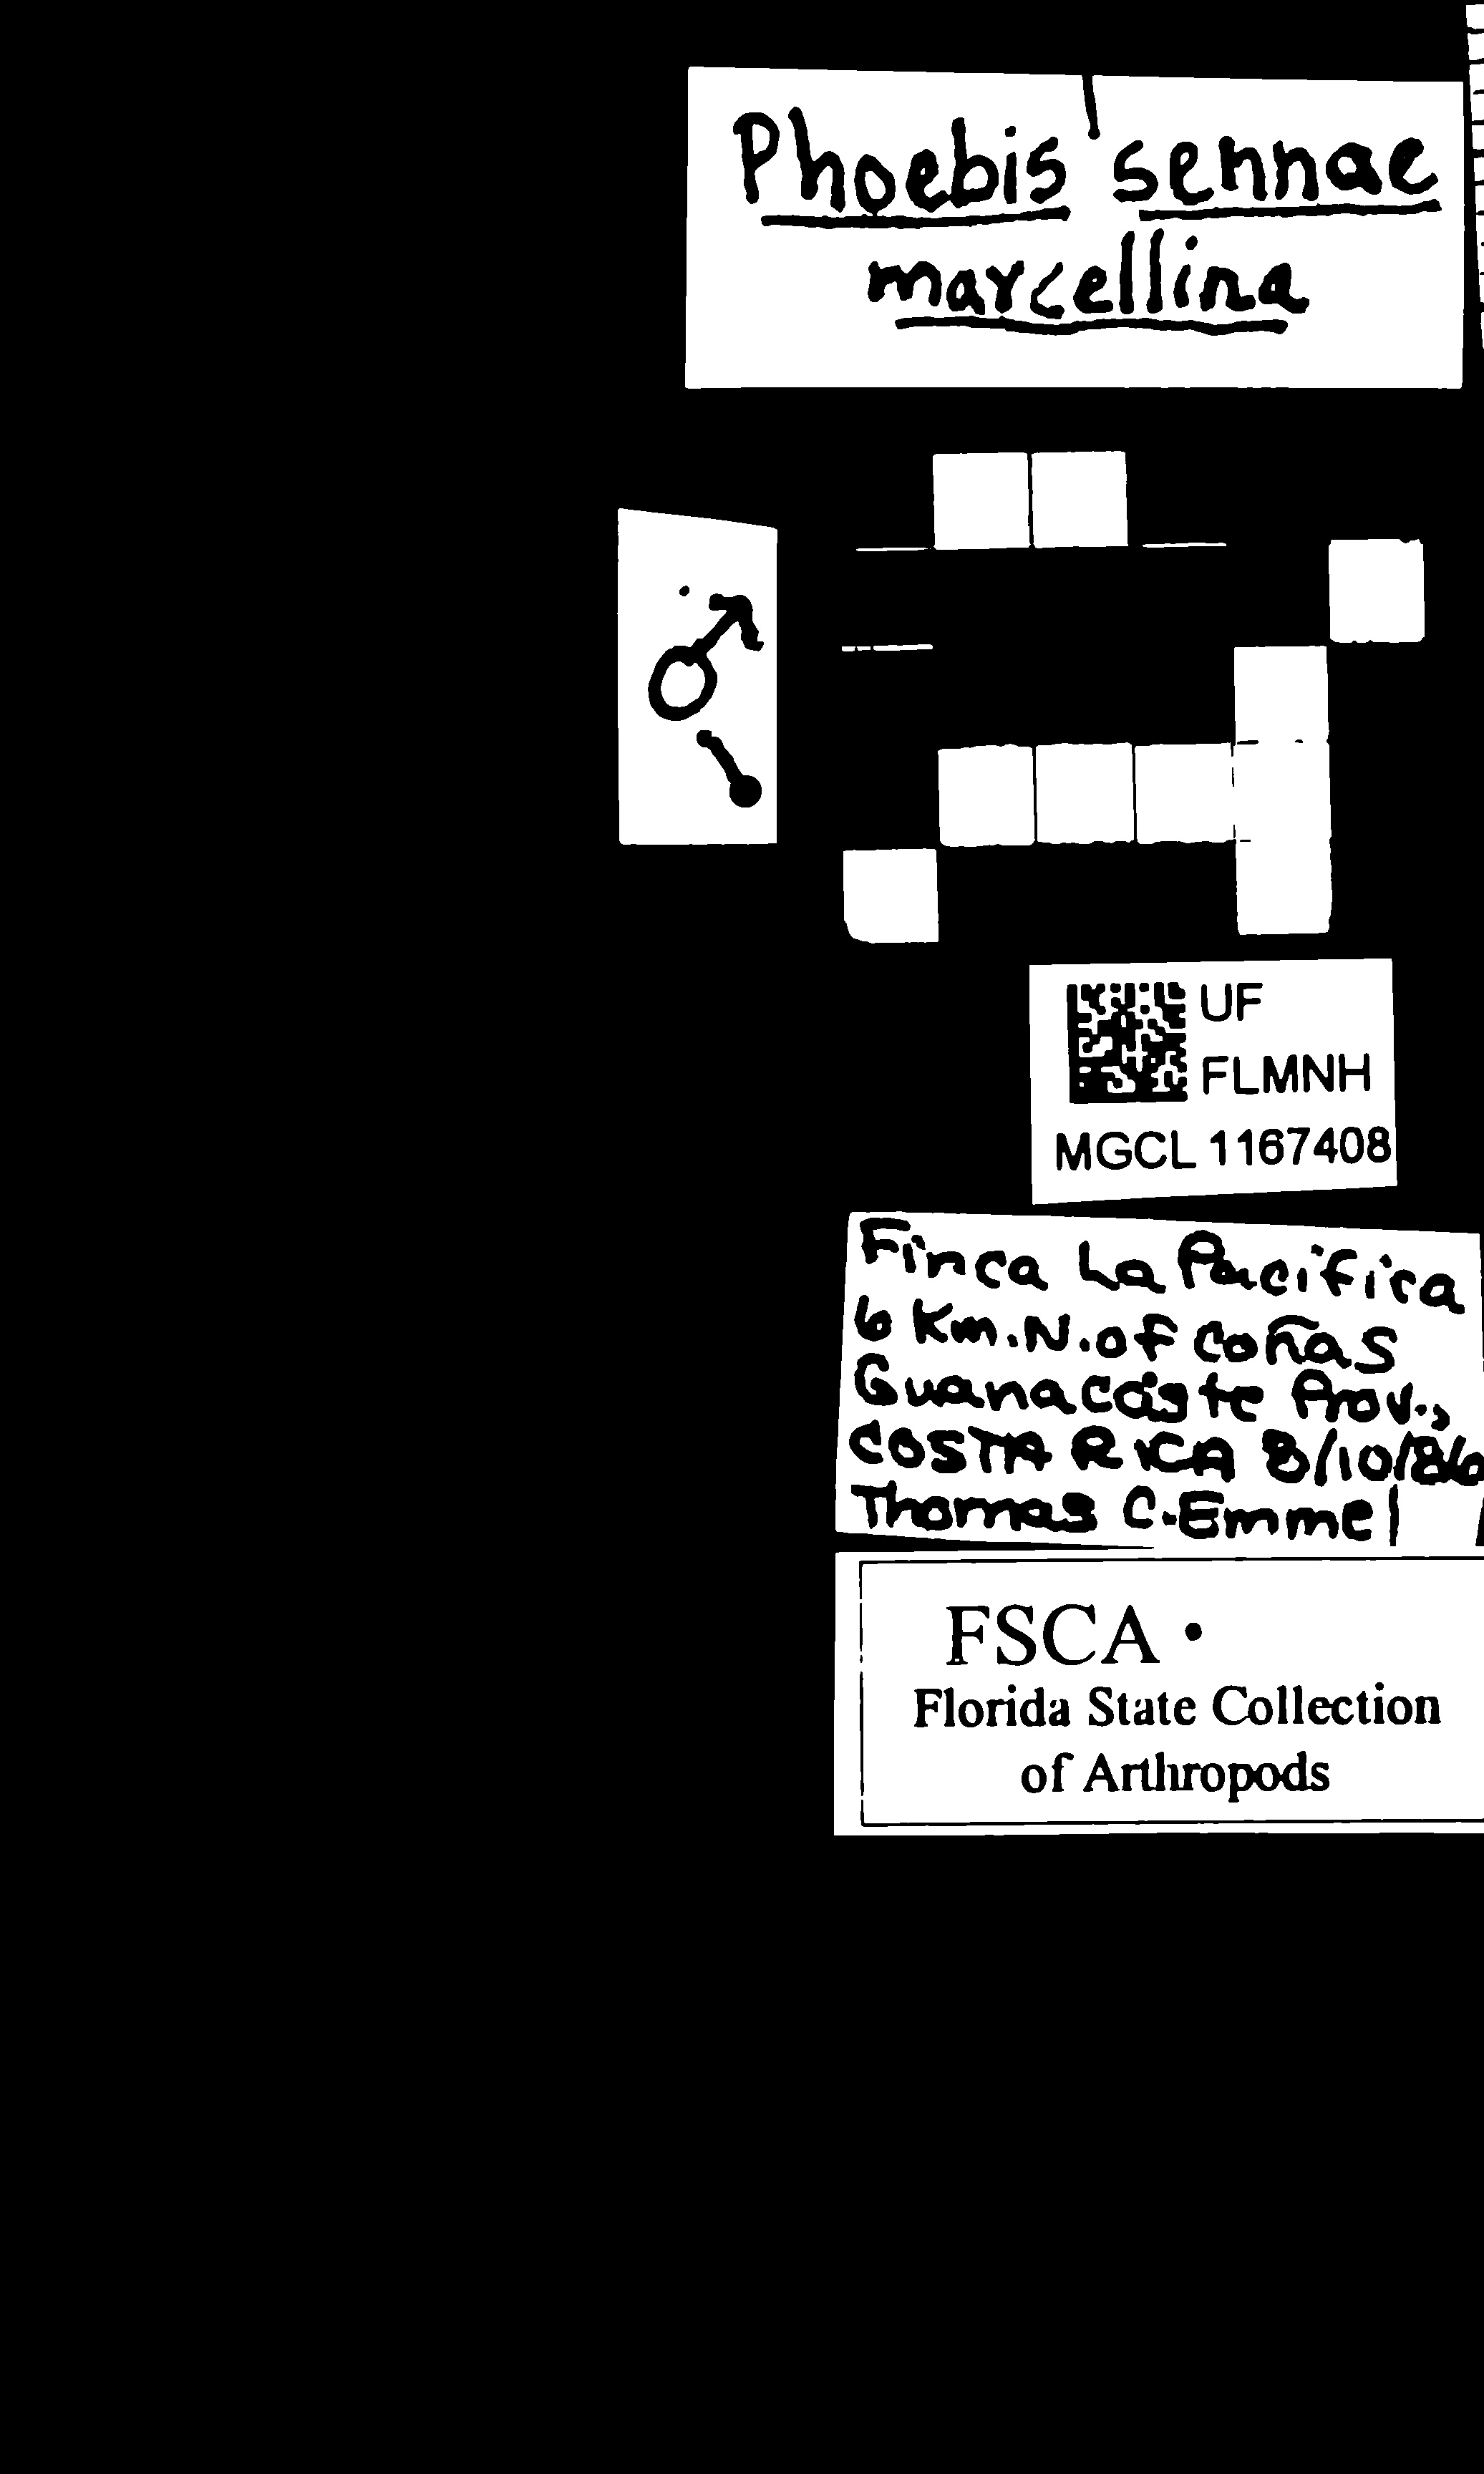 Phoebis sennae
marcellina
♂
UF
FLMNH
MGCL 1167408
Finca La Pacifica
6 Km.N.of coñas
Guanacaste Prov.,
COSTA RICA 8/10/86
Thomas C. Emmel
FSCA •
Florida State Collection
of Arthropods